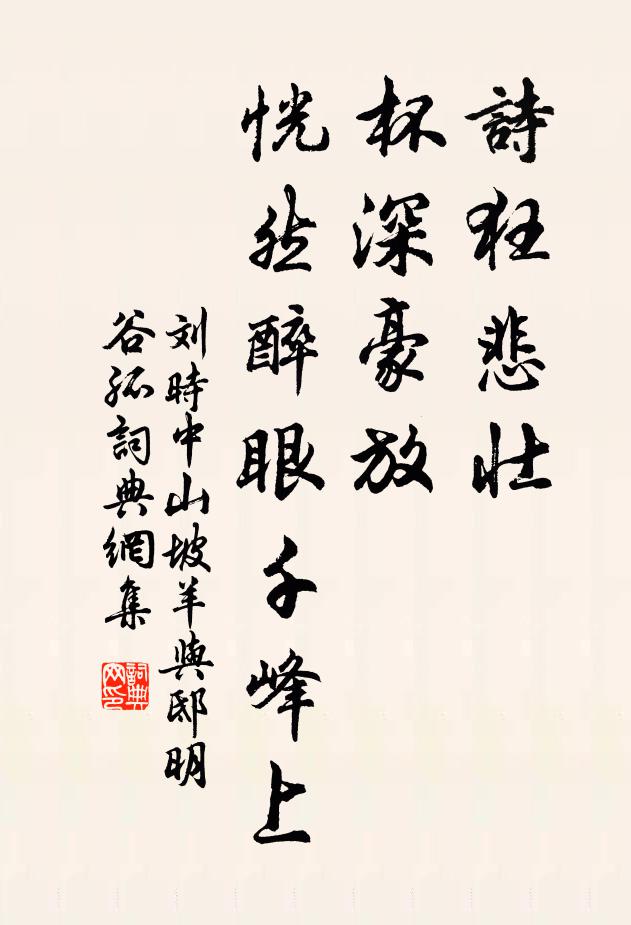 詩狂悲壯
杯深豪放
恍然醉眼千峰上
刘時中山坡羊與邸明
谷孤詞典網集
詞典
网印